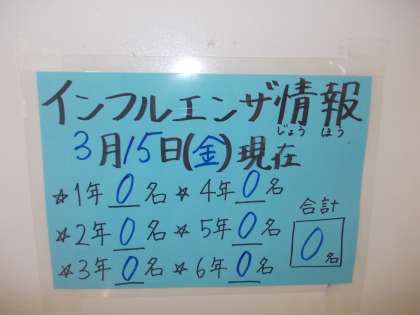 インフルエンザ情報
じょうほう
3月15日(金)現在
☆1年0名 ☆4年0名
☆2年0名 ☆5年0名
☆3年0名 ☆6年0名
合計
0名